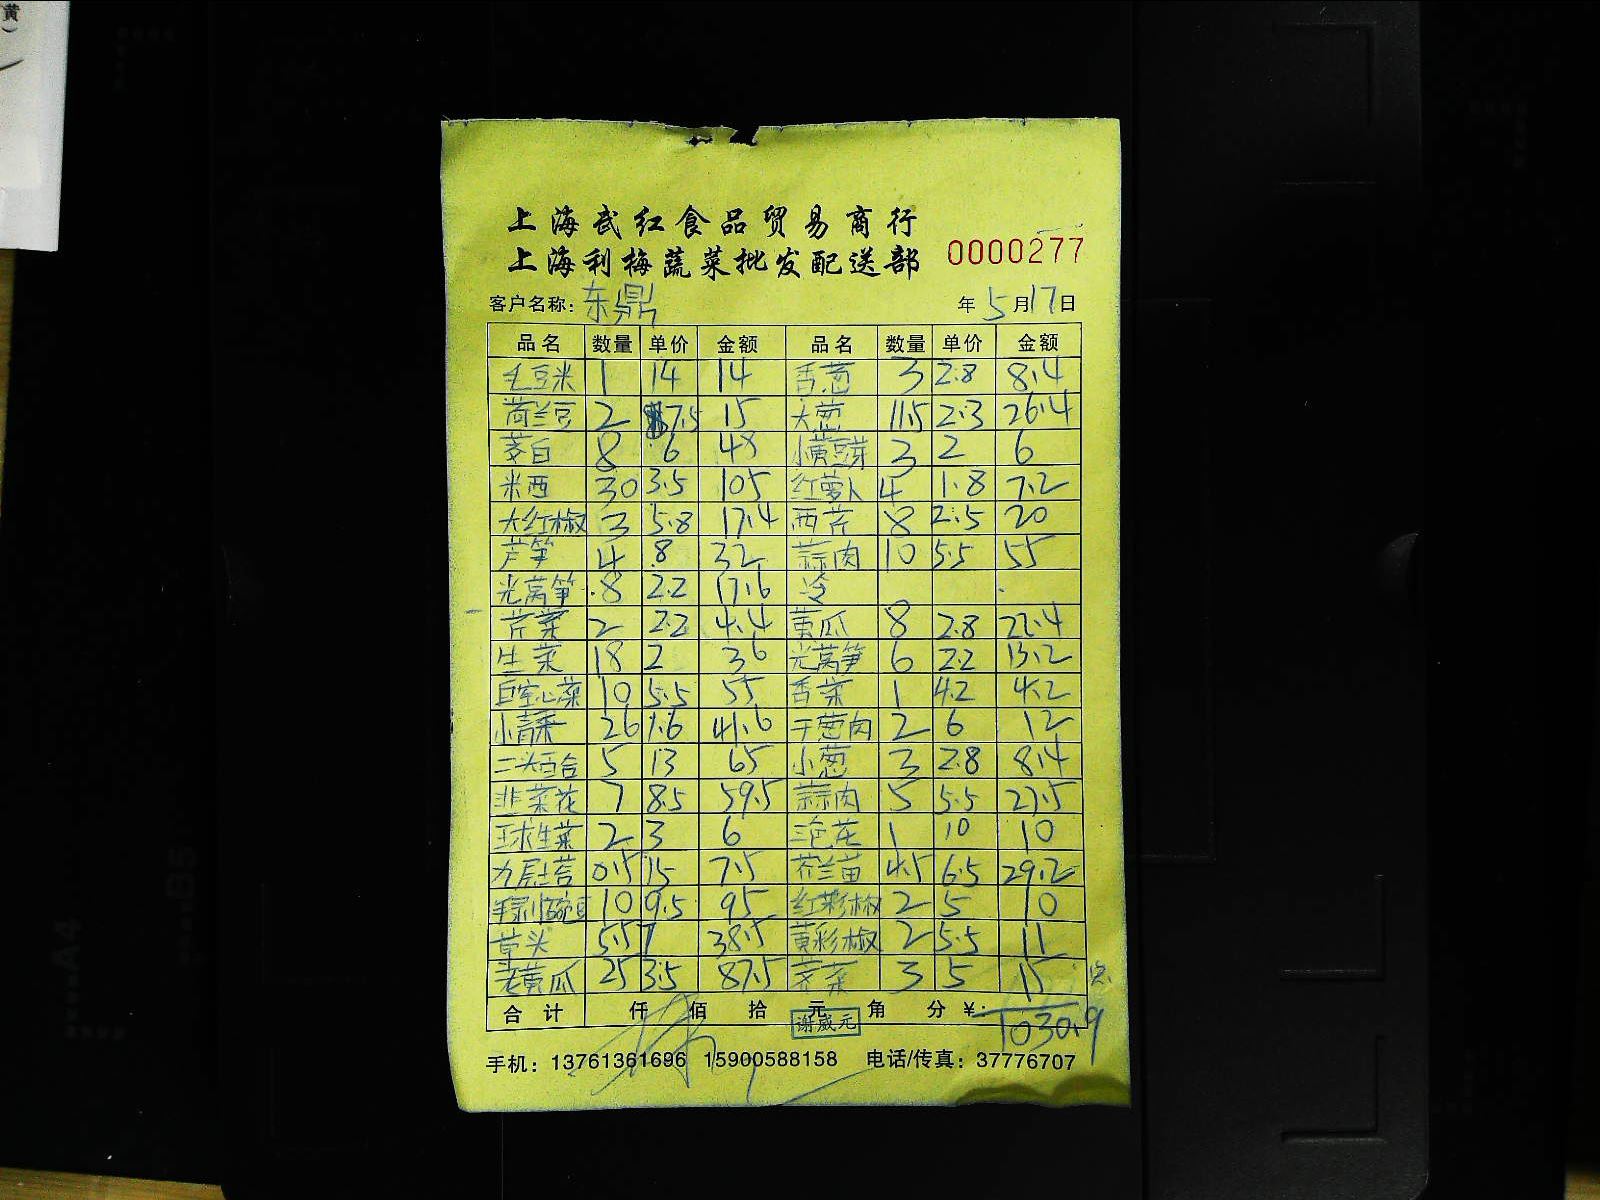 黄
上海武红食品贸易商行
上海利梅蔬菜批发配送部 0000277
客户名称：东鼎 年5月17日
品名 数量 单价 金额 品名 数量 单价 金额
毛豆米 1 14 14 香葱 3 2.8 8.4
荷兰豆 2 7.5 15 大葱 11.5 2.3 26.4
茭白 8 6 48 小黄豆芽 3 2 6
米西 30 3.5 105 红萝卜 4 1.8 7.2
大红椒 3 5.8 17.4 西芹 8 2.5 20
芦笋 4 8 32 蒜肉 10 5.5 55
光莴笋 8 2.2 17.6 冷
芹菜 2 2.2 4.4 黄瓜 8 2.8 22.4
生菜 18 2 36 光莴笋 6 2.2 13.2
巨空心菜 10 5.5 55 香菜 1 4.2 4.2
小青菜 26 1.6 41.6 干葱肉 2 6 12
二头百合 5 13 65 小葱 3 2.8 8.4
韭菜花 7 8.5 59.5 蒜肉 5 5.5 27.5
球生菜 2 3 6 三色花 1 10 10
九层苔 0.5 15 7.5 芥兰苗 4.5 6.5 29.2
10 9.5 95 红彩椒 2 5 10
草头 5.5 7 38.5 黄彩椒 2 5.5 11
老黄瓜 25 3.5 87.5 荠菜 3 5 15
合计 仟 佰 拾 元 角 分 ￥ 1030.9
谢威元
手机：13761361696 15900588158 电话/传真：37776707